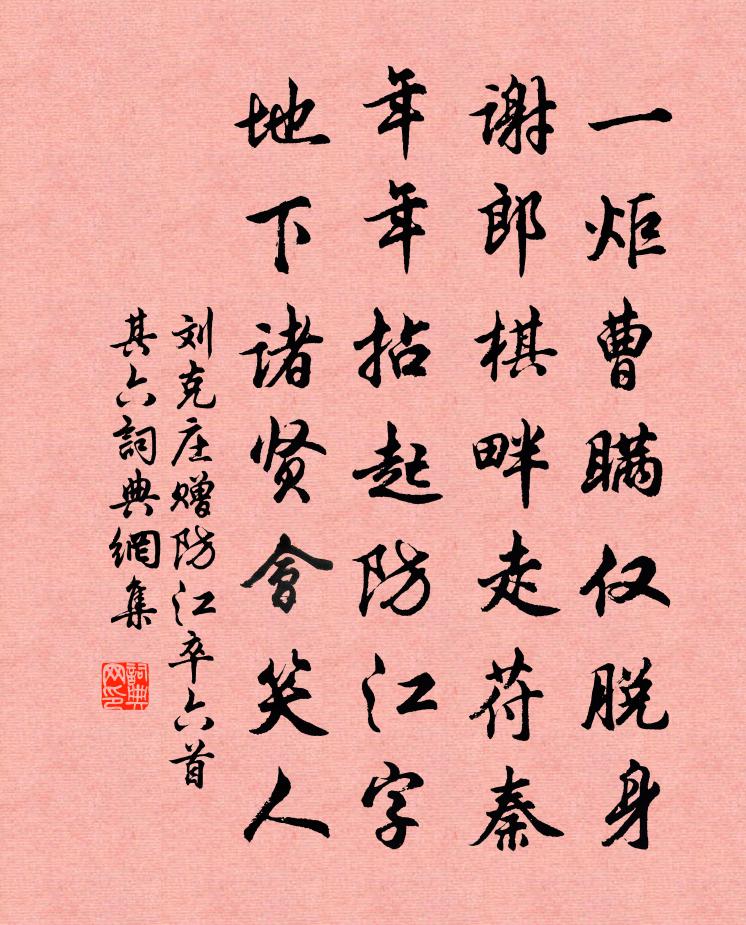 一炬曹瞒仅脱身
谢郎棋畔走苻秦
年年拈起防江字
地下诸贤会笑人
刘克庄赠防江卒六首
其六詞典網集
詞典網印